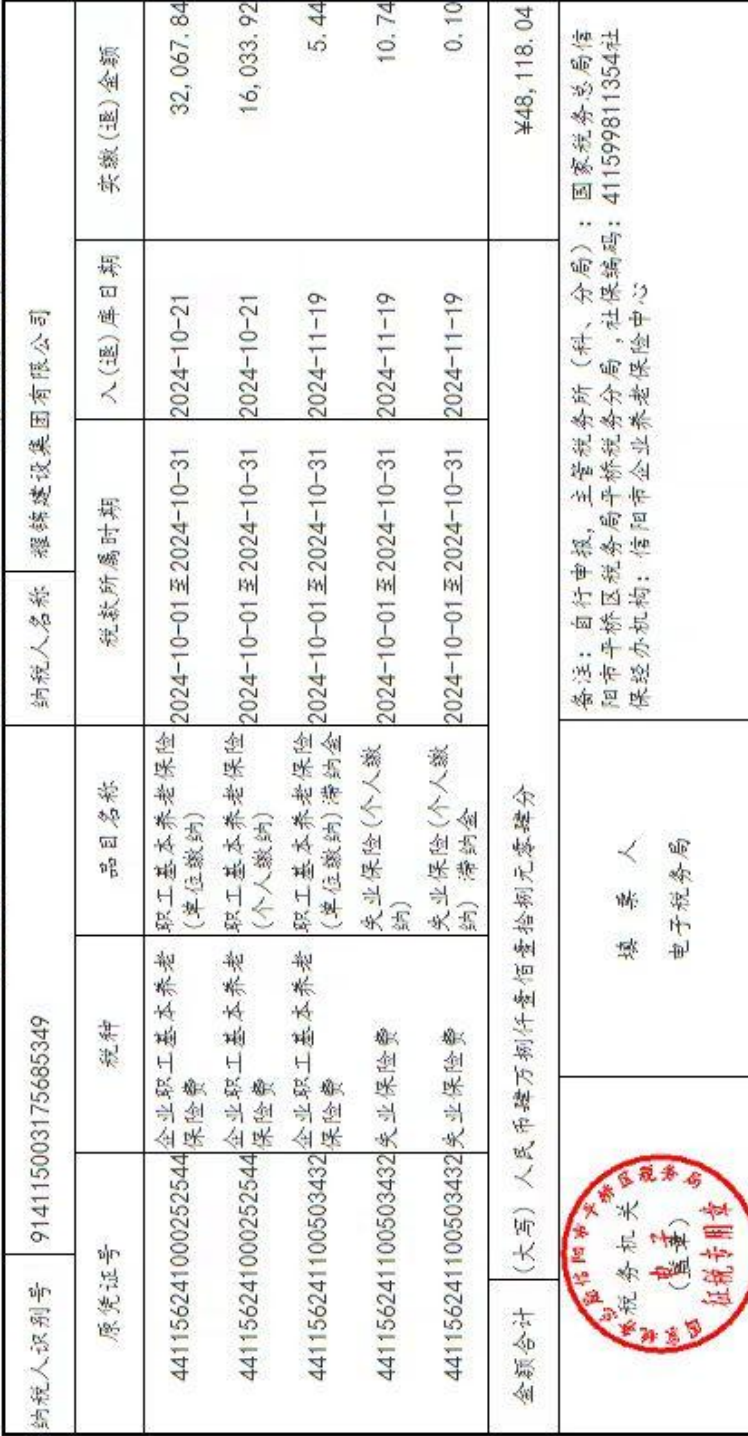 纳税人识别号 91411500317568​5349 纳税人名称 耀锦建设集团有限公司
原凭证号 税种 品目名称 税款所属时期 入(退)库日期 实缴(退)金额
441156241000252544 企业职工基本养老保险费 职工基本养老保险(单位缴纳) 2024-10-01至2024-10-31 2024-10-21 32,067.84
441156241000252544 企业职工基本养老保险费 职工基本养老保险(个人缴纳) 2024-10-01至2024-10-31 2024-10-21 16,033.92
441156241100503432 企业职工基本养老保险费 职工基本养老保险(单位缴纳)滞纳金 2024-10-01至2024-10-31 2024-11-19 5.44
441156241100503432 失业保险费 失业保险(个人缴纳) 2024-10-01至2024-10-31 2024-11-19 10.74
441156241100503432 失业保险费 失业保险(个人缴纳)滞纳金 2024-10-01至2024-10-31 2024-11-19 0.10
金额合计 (大写) 人民币肆万捌仟壹佰壹拾捌元零肆分 ¥48,118.04
税务机关
(盖章)
国家税务总局信阳市平桥区税务局
电子
征税专用章
填票人
电子税务局
备注：自行申报，主管税务所（科、分局）：国家税务总局信
阳市平桥区税务局平桥税务分局，社保编码：411599811354社
保经办机构：信阳市企业养老保险中心